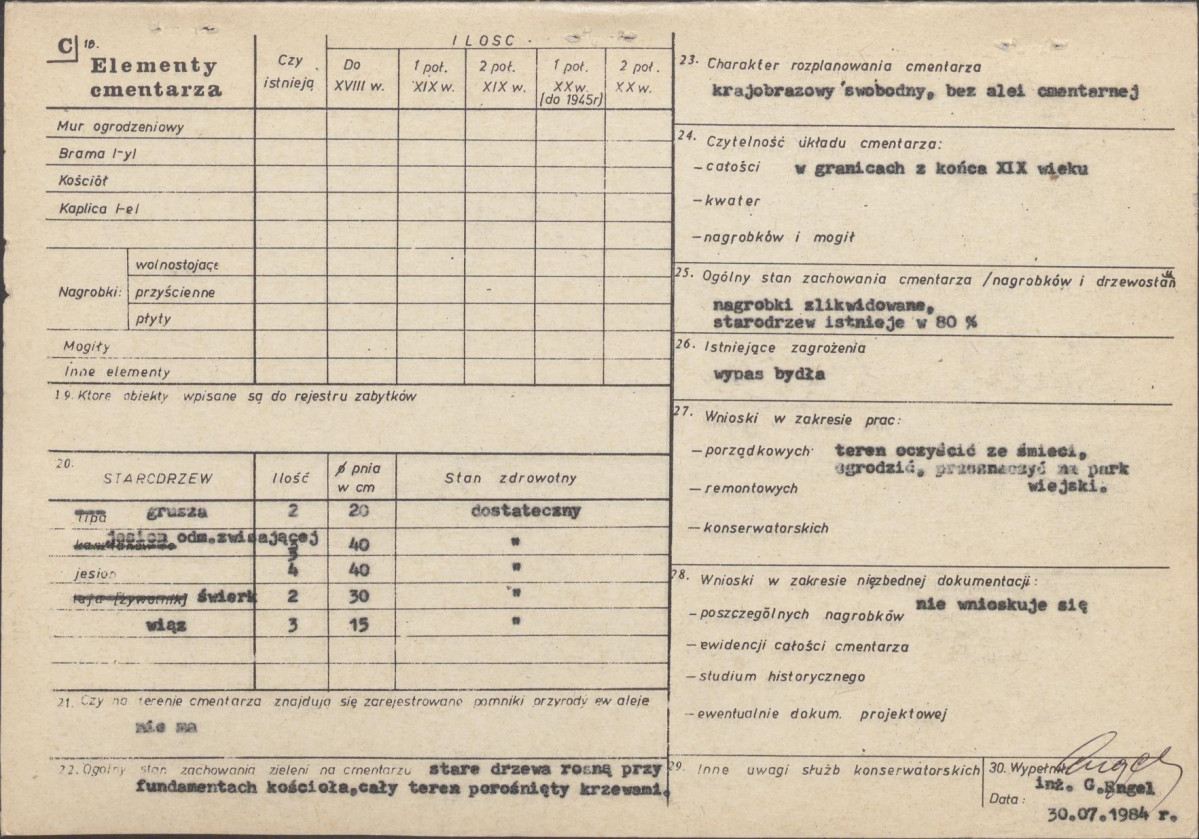 C 18.
Elementy
cmentarza
Czy
istnieją
ILOSC
Do
XVIII w.
1 poł.
XIX w.
2 poł.
XIX w.
1 poł.
XX w.
(do 1945r)
2 poł.
XX w.
Mur ogrodzeniowy
Brama /-y/
Kościół
Kaplica /-e/
Nagrobki:
wolnostojące
przyścienne
płyty
Mogiły
Inne elementy
19. Które obiekty wpisane są do rejestru zabytków
20.
STARODRZEW
Ilość
ϕ pnia
w cm
Stan zdrowotny
lipa grusza 2 20 dostateczny
jesion odm.zwisającej
3 40 "
jesion 4 40 "
tuja [żywotnik] świerk 2 30 "
wiąz 3 15 "
21. Czy na terenie cmentarza znajdują się zarejestrowane pomniki przyrody ew aleje
nie ma
22. Ogólny stan zachowania zieleni na cmentarzu stare drzewa rosną przy
fundamentach kościoła,cały teren porośnięty krzewami.
23. Charakter rozplanowania cmentarza
krajobrazowy swobodny, bez alei cmentarnej
24. Czytelność układu cmentarza:
– całości w granicach z końca XIX wieku
– kwater
– nagrobków i mogił
25. Ogólny stan zachowania cmentarza /nagrobków i drzewostan
nagrobki zlikwidowane,
starodrzew istnieje w 80 %
26. Istniejące zagrożenia
wypas bydła
27. Wnioski w zakresie prac:
– porządkowych teren oczyścić ze śmieci,
ogrodzić, przeznaczyć na park
– remontowych wiejski.
– konserwatorskich
28. Wnioski w zakresie niezbędnej dokumentacji:
nie wnioskuje się
– poszczególnych nagrobków
– ewidencji całości cmentarza
– studium historycznego
– ewentualnie dokum. projektowej
29. Inne uwagi służb konserwatorskich
30. Wypełnił
inż. G.Engel
Data:
30.07.1984 r.